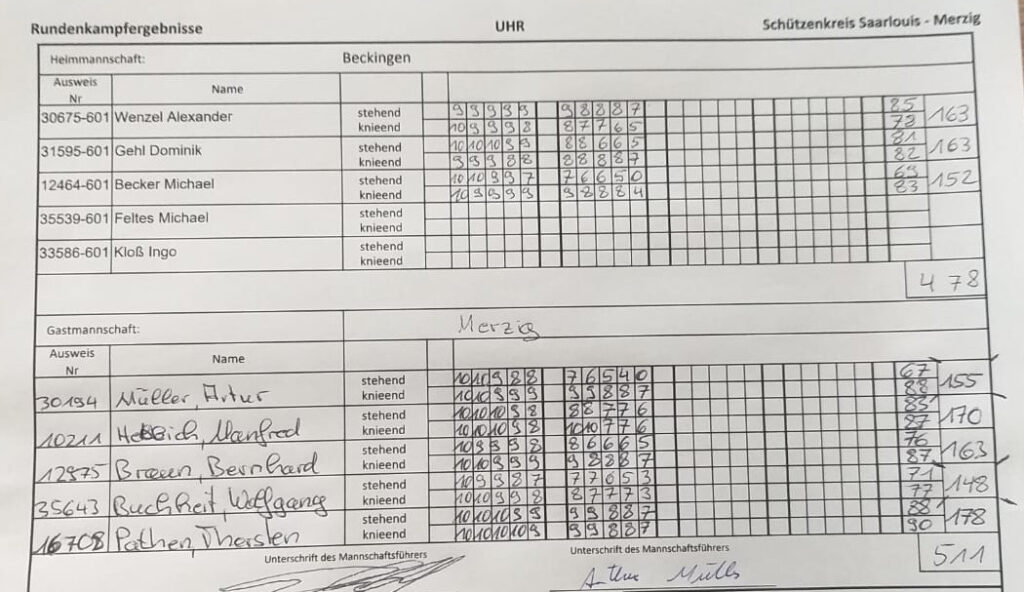 Rundenkampfergebnisse UHR Schützenkreis Saarlouis - Merzig
Heimmannschaft: Beckingen
Ausweis Nr Name
30675-601 Wenzel Alexander stehend 9 9 9 9 9 9 8 8 8 7 85 163
knieend 10 9 9 9 8 8 7 7 6 5 78
31595-601 Gehl Dominik stehend 10 10 10 9 9 8 8 6 6 5 81 163
knieend 9 9 9 8 8 8 8 8 8 7 82
12464-601 Becker Michael stehend 10 10 9 9 7 7 6 6 5 0 69 152
knieend 10 9 9 9 9 9 8 8 8 4 83
35539-601 Feltes Michael stehend
knieend
33586-601 Kloß Ingo stehend
knieend
478
Gastmannschaft: Merzig
Ausweis Nr Name
30194 Müller, Artur stehend 10 10 9 8 8 7 6 5 4 0 67 155
knieend 10 10 9 9 9 9 9 8 8 7 88
10211 Manfred stehend 10 10 10 9 8 8 8 7 7 6 83 170
knieend 10 10 10 9 8 10 10 7 7 6 87
12975 Braun, Bernhard stehend 10 9 9 9 8 8 6 6 6 5 76 163
knieend 10 10 9 9 9 9 8 8 8 7 87
35643 Buchheit, Wolfgang stehend 10 9 9 8 7 7 7 6 5 3 71 148
knieend 10 10 9 9 8 8 7 7 7 3 77
16708 Pathen, Thorsten stehend 10 10 10 9 9 9 9 8 8 7 88 178
knieend 10 10 10 10 9 9 9 8 8 7 90
Unterschrift des Mannschaftsführers Unterschrift des Mannschaftsführers 511